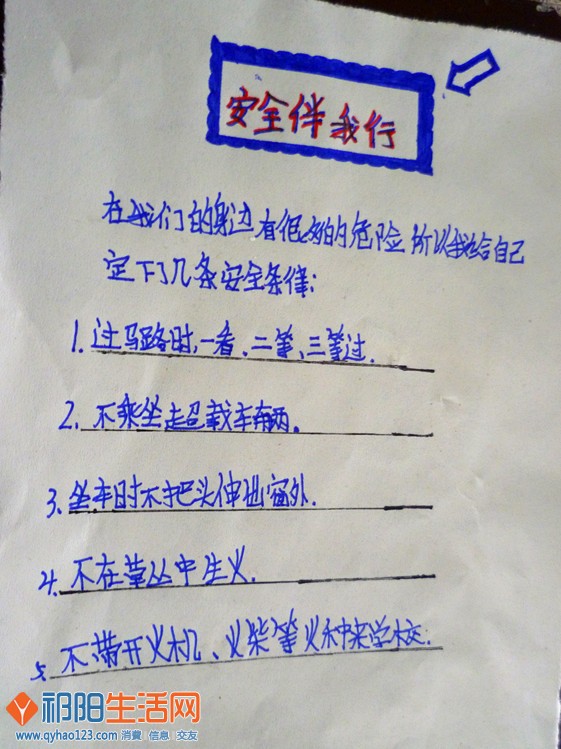 安全伴我行
在我们的身边有很多的危险所以我给自己
定下了几条安全条律:
1.过马路时,一看、二等、三等过.
2.不乘坐超载车辆。
3.坐车时不把头伸出窗外.
4.不在草丛中生火.
5.不带开火机、火柴等火种来学校.
祁阳生活网
www.qyhao123.com 消费 信息 交友